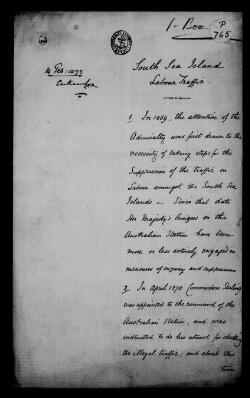 1 - Box P/765
14 Feb: 1873
South Sea Island
Labour Traffic
1. In 1869, the attention of the
Admiralty was first drawn to the
necessity of taking steps for the
Suppression of the traffic in
Labour amongst the South Sea
Islands. Since that date
Her Majesty's on the
Australian Station have been
more or less actively engaged in
measures of enquiry and suppression
2. In April 1870 Commodore Stirling
was appointed to the command of the
Australian Station, and was
instructed to do his utmost for checking
the illegal traffic; and about this
time